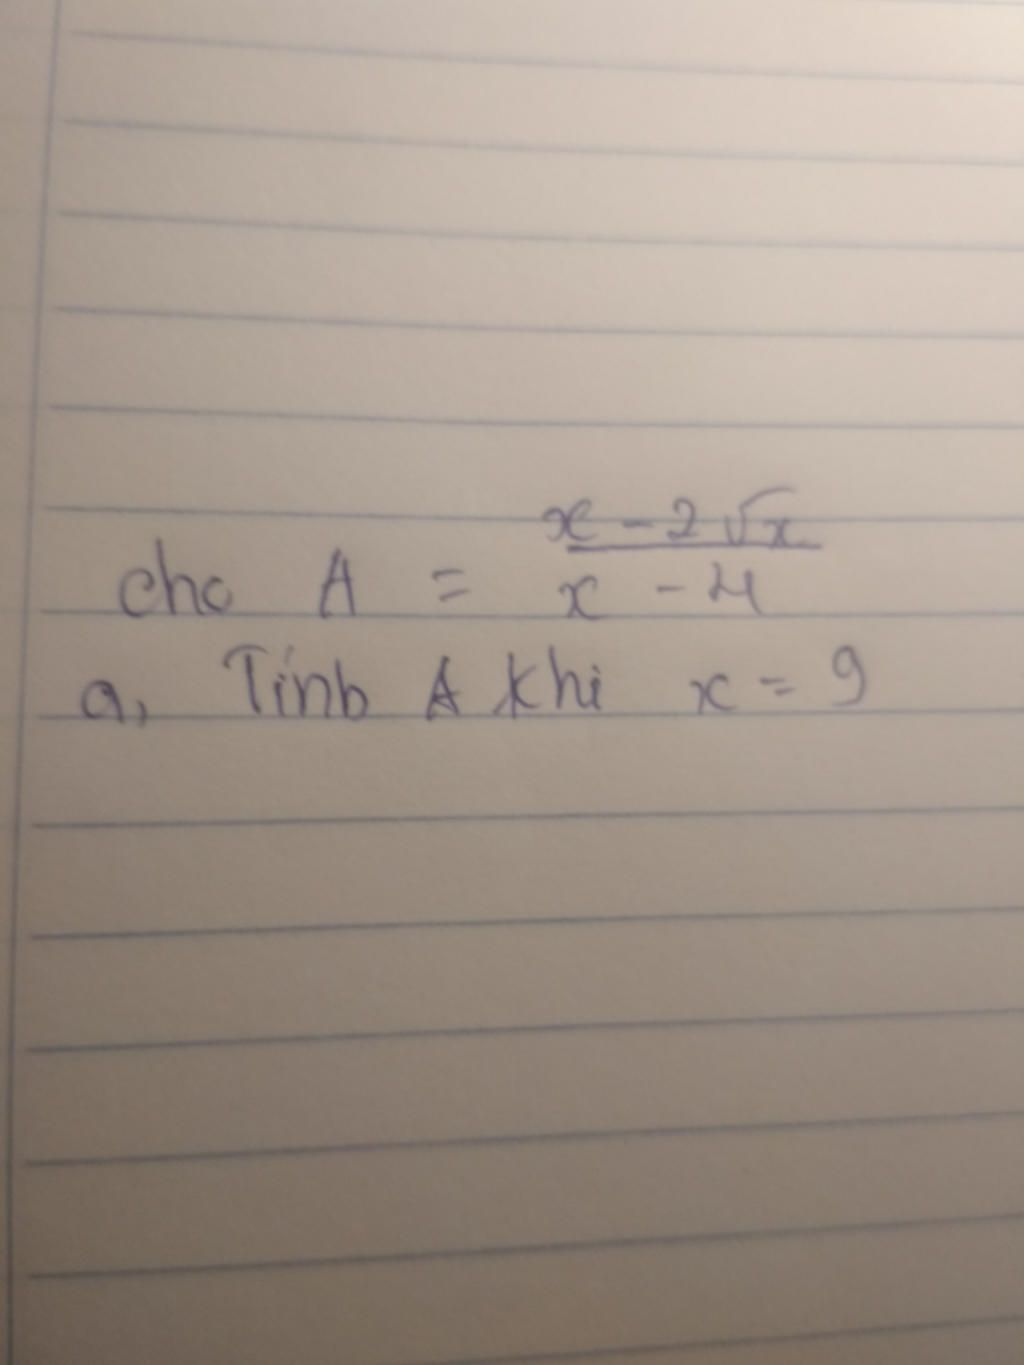 cho A = \frac{x - 2\sqrt{x}}{x - 4}
a, Tính A khi x = 9